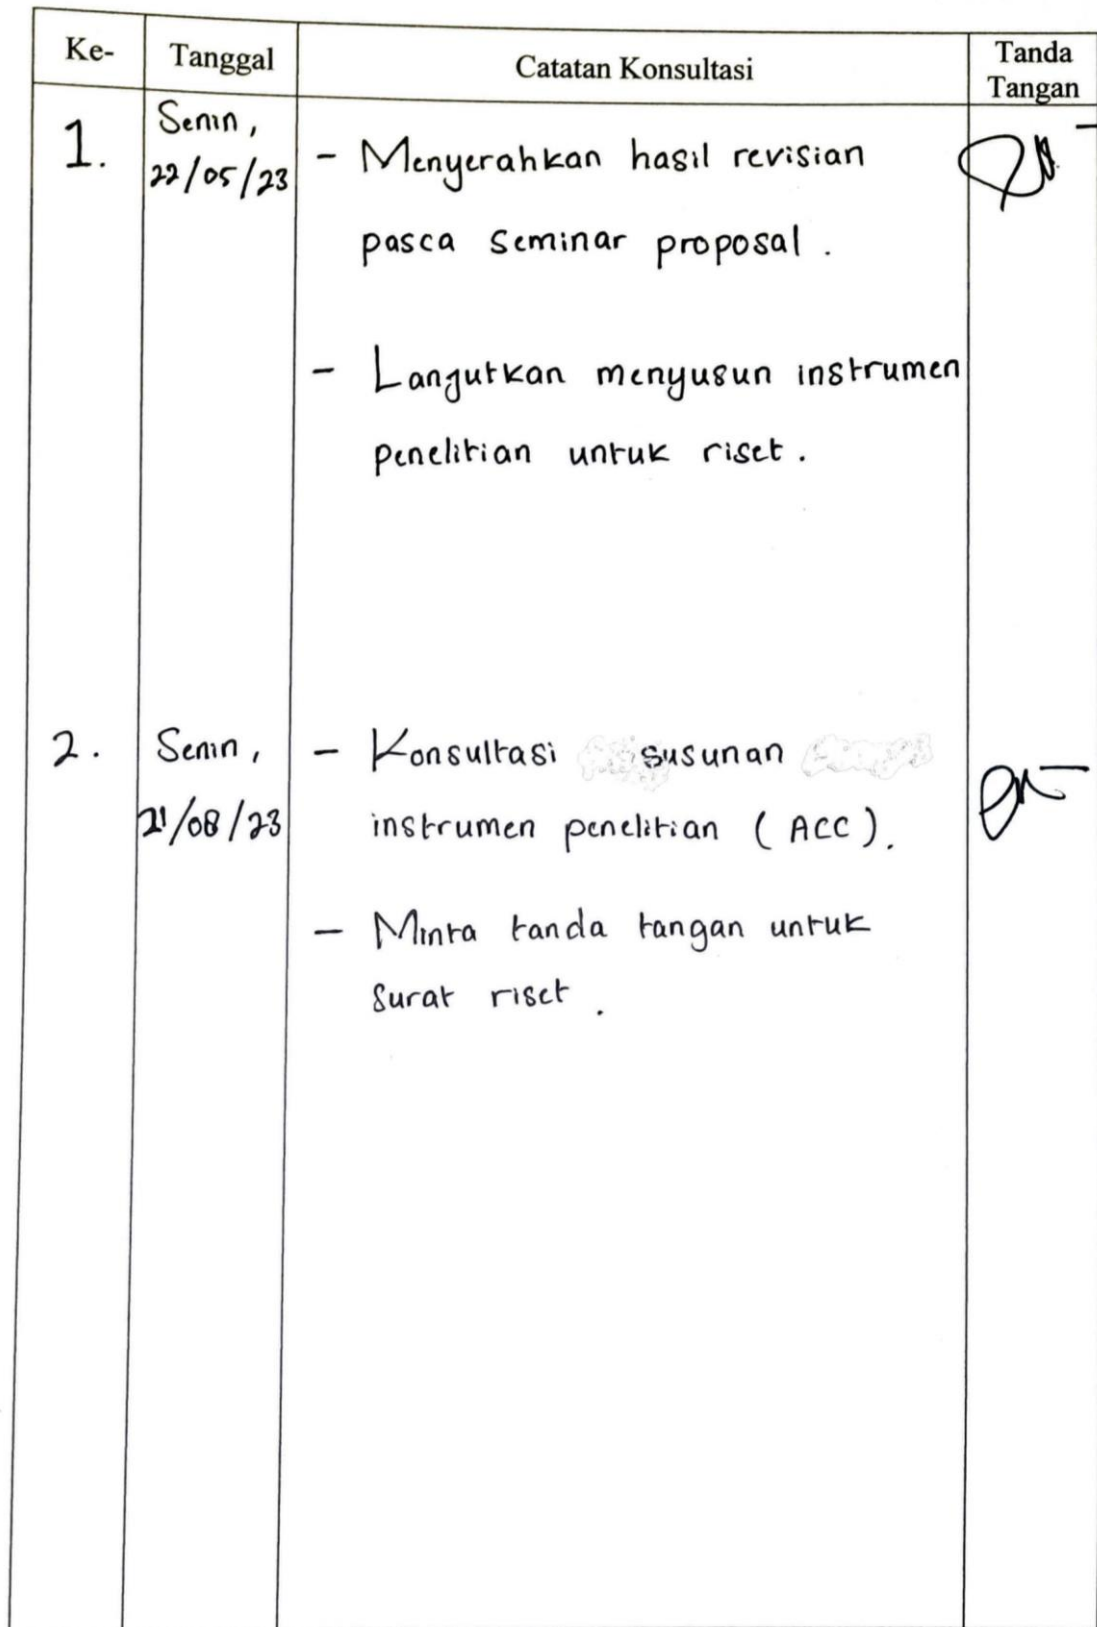 Ke- Tanggal Catatan Konsultasi Tanda Tangan
1. Senin,
22/05/23 - Menyerahkan hasil revisian
pasca seminar proposal.
- Langutkan menyusun instrumen
penelitian untuk riset.
2. Senin, - Konsultasi susunan
21/08/23 instrumen penelitian (ACC).
- Minta tanda tangan untuk
surat riset.